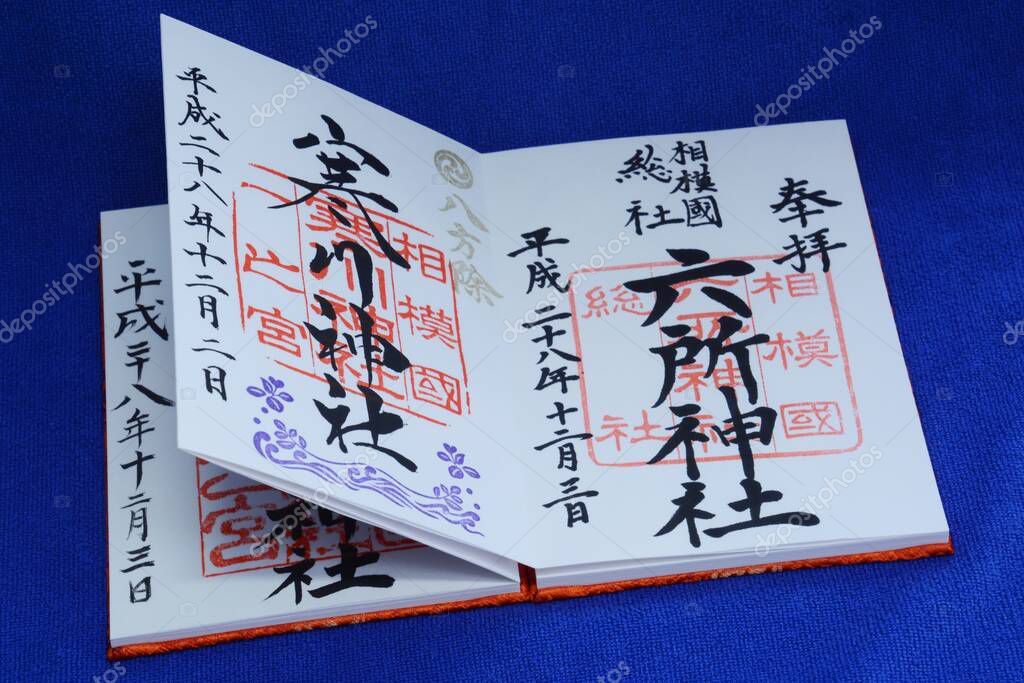 奉拝
相模國
総社
六所神社
平成二十八年十二月三日
相模國
六所神社
総社
八方除
寒川神社
平成二十八年十二月二日
相模國
寒川神社
一山宮
神社
宮
平成二十八年十二月三日
depositphotos
depositphotos
depositphotos
depositphotos
depositphotos
depositphotos